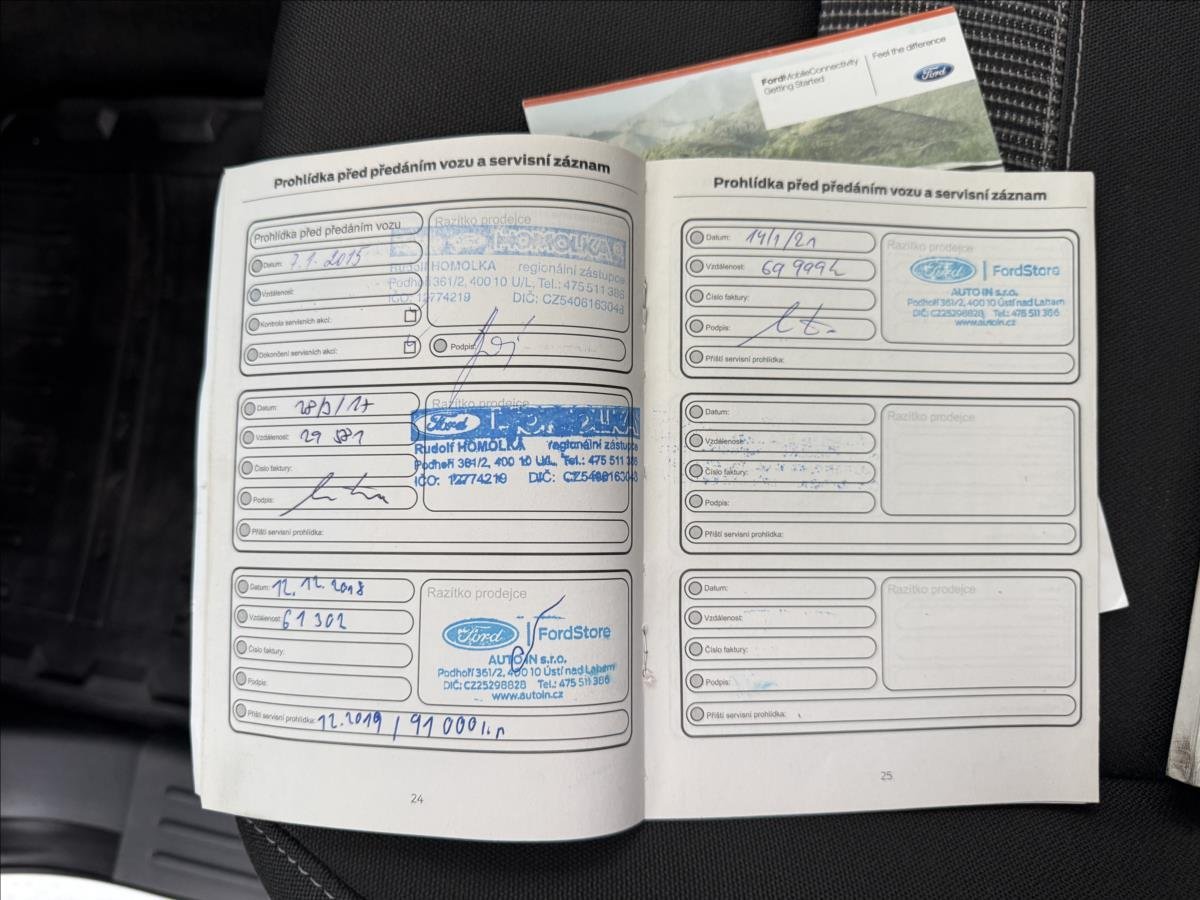 FordMobileConnectivity
Getting Started
Feel the difference
Ford
Prohlídka před předáním vozu a servisní záznam
Prohlídka před předáním vozu
Datum: 7.1.2015
Vzdálenost:
Kontrola servisních akcí:
Dokončení servisních akcí:
Razítko prodejce
HOMOLKA
Rudolf HOMOLKA regionální zástupce
Podhoří 361/2, 400 10 U/L, Tel.: 475 511 386
IČO: 12774219 DIČ: CZ5406163043
Podpis:
Datum: 28/3/17
Vzdálenost: 29 581
Číslo faktury:
Podpis:
Příští servisní prohlídka:
Razítko prodejce
Ford HOMOLKA
Rudolf HOMOLKA regionální zástupce
Podhoří 361/2, 400 10 U/L, Tel.: 475 511 386
IČO: 12774219 DIČ: CZ5406163043
Datum: 12.12.2018
Vzdálenost: 61 302
Číslo faktury:
Podpis:
Příští servisní prohlídka: 12.2019 / 91 000
Razítko prodejce
Ford | FordStore
AUTO IN s.r.o.
Podhoří 361/2, 400 10 Ústí nad Labem
DIČ: CZ25298828 Tel.: 475 511 386
www.autoin.cz
24
Prohlídka před předáním vozu a servisní záznam
Datum: 14/1/21
Vzdálenost: 69 999
Číslo faktury:
Podpis:
Příští servisní prohlídka:
Razítko prodejce
Ford | FordStore
AUTO IN s.r.o.
Podhoří 361/2, 400 10 Ústí nad Labem
DIČ: CZ25298828 Tel.: 475 511 386
www.autoin.cz
Datum:
Vzdálenost:
Číslo faktury:
Podpis:
Příští servisní prohlídka:
Razítko prodejce
Datum:
Vzdálenost:
Číslo faktury:
Podpis:
Příští servisní prohlídka:
Razítko prodejce
25